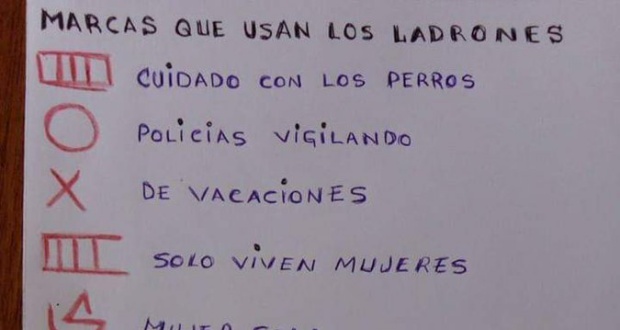 MARCAS QUE USAN LOS LADRONES
CUIDADO CON LOS PERROS
POLICIAS VIGILANDO
DE VACACIONES
SOLO VIVEN MUJERES